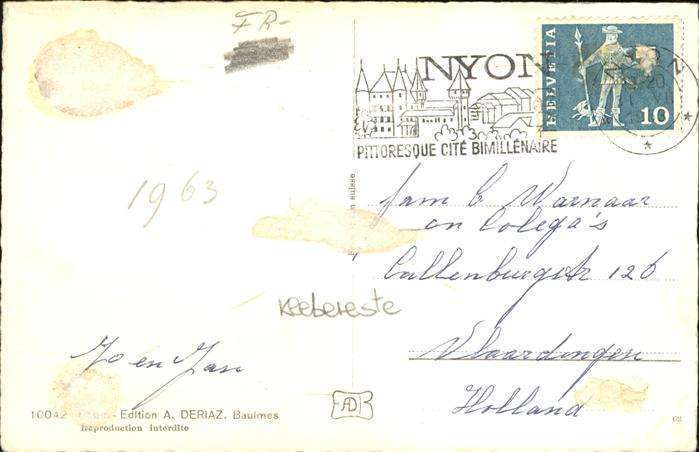 FR-
NYON
PITTORESQUE CITÉ BIMILLÉNAIRE
HELVETIA
10
1963
fam b Warnaar
en Colega's
Callenburgstr 126
Vlaardingen
Holland
Klebereste
Jo en Jan
10042
Edition A. DERIAZ, Baulmes
Reproduction interdite